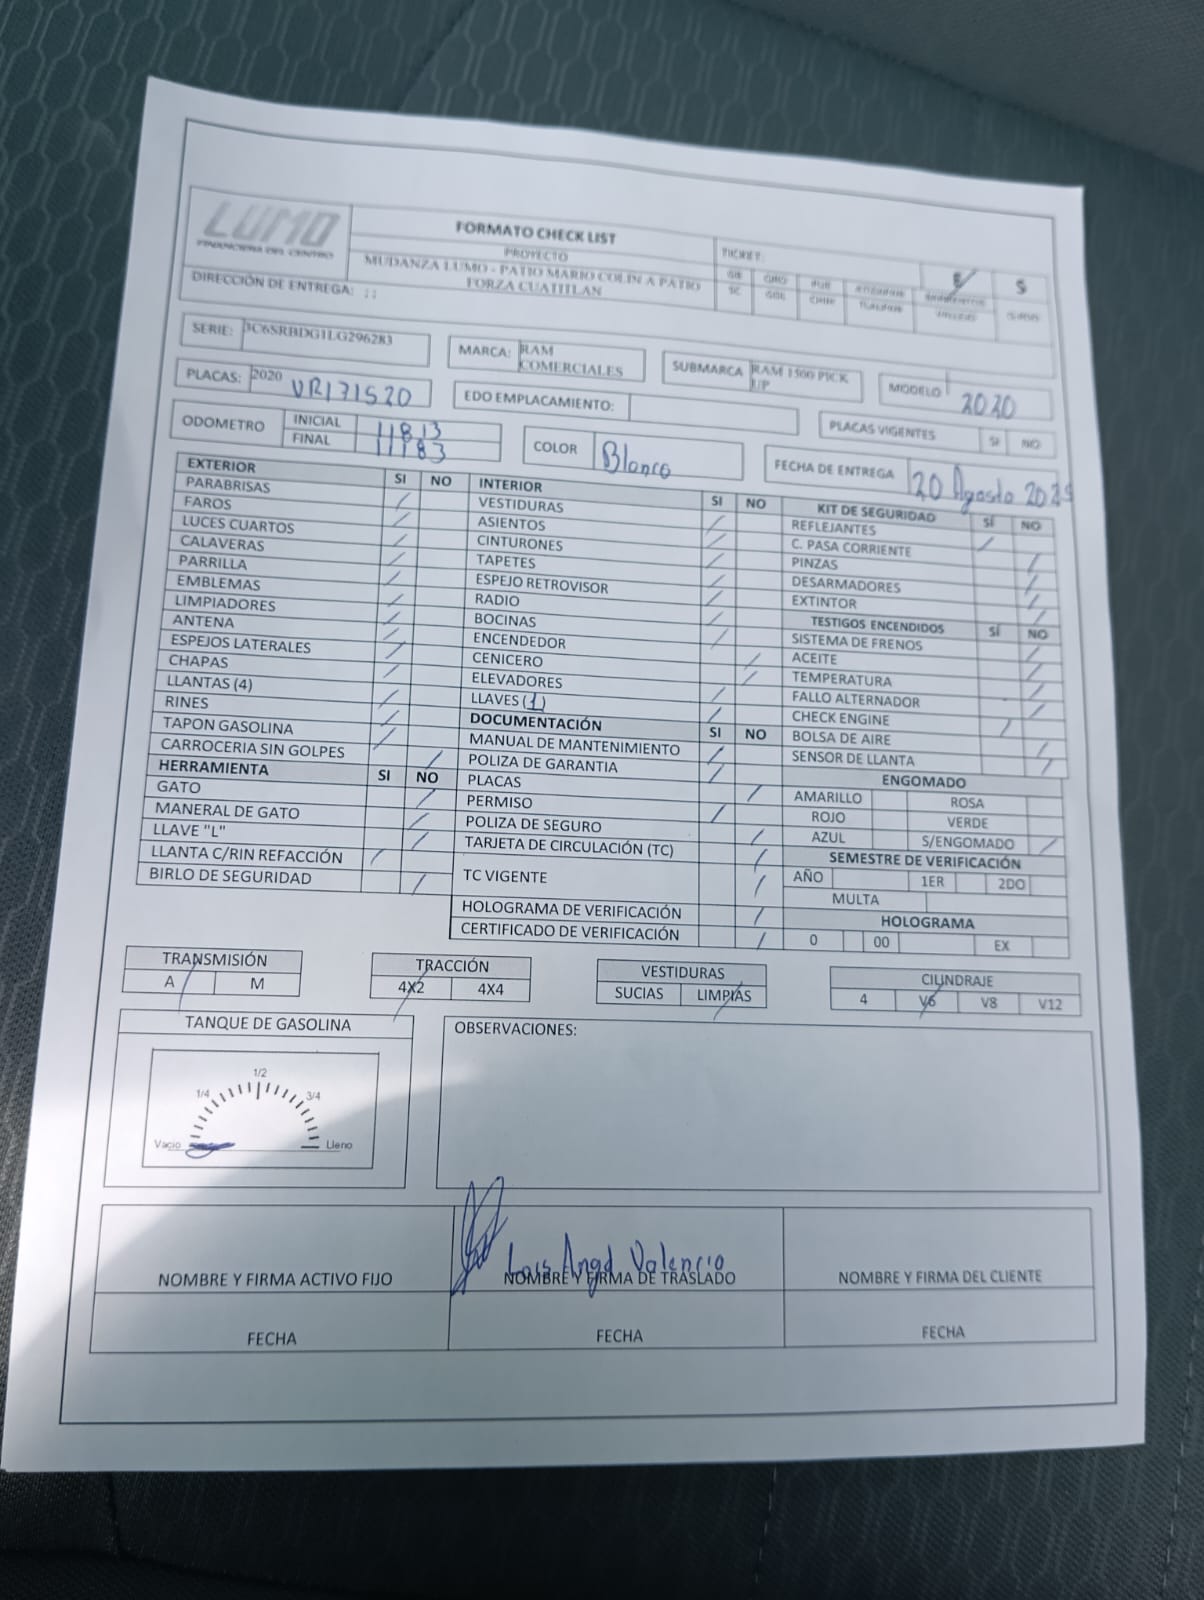 LUMO
FINANCIERA DEL CENTRO
FORMATO CHECK LIST
PROYECTO
MUDANZA LUMO - PATIO MARIO COLIN A PATIO
FORZA CUATITLAN
TICKET:
E S
DIRECCIÓN DE ENTREGA: ; ;
SERIE: 3C6SRBDG1LG296283
MARCA: RAM
COMERCIALES
SUBMARCA RAM 1500 PICK
UP
MODELO 2020
PLACAS: 2020 VR171520
EDO EMPLACAMIENTO:
PLACAS VIGENTES SI NO
ODOMETRO
INICIAL 11813
FINAL 11183
COLOR Blanco
FECHA DE ENTREGA 20 Agosto 2025
EXTERIOR SI NO
PARABRISAS
FAROS
LUCES CUARTOS
CALAVERAS
PARRILLA
EMBLEMAS
LIMPIADORES
ANTENA
ESPEJOS LATERALES
CHAPAS
LLANTAS (4)
RINES
TAPON GASOLINA
CARROCERIA SIN GOLPES
HERRAMIENTA SI NO
GATO
MANERAL DE GATO
LLAVE "L"
LLANTA C/RIN REFACCIÓN
BIRLO DE SEGURIDAD
INTERIOR SI NO
VESTIDURAS
ASIENTOS
CINTURONES
TAPETES
ESPEJO RETROVISOR
RADIO
BOCINAS
ENCENDEDOR
CENICERO
ELEVADORES
LLAVES (1)
DOCUMENTACIÓN SI NO
MANUAL DE MANTENIMIENTO
POLIZA DE GARANTIA
PLACAS
PERMISO
POLIZA DE SEGURO
TARJETA DE CIRCULACIÓN (TC)
TC VIGENTE
HOLOGRAMA DE VERIFICACIÓN
CERTIFICADO DE VERIFICACIÓN
KIT DE SEGURIDAD SÍ NO
REFLEJANTES
C. PASA CORRIENTE
PINZAS
DESARMADORES
EXTINTOR
TESTIGOS ENCENDIDOS SÍ NO
SISTEMA DE FRENOS
ACEITE
TEMPERATURA
FALLO ALTERNADOR
CHECK ENGINE
BOLSA DE AIRE
SENSOR DE LLANTA
ENGOMADO
AMARILLO ROSA
ROJO VERDE
AZUL S/ENGOMADO
SEMESTRE DE VERIFICACIÓN
AÑO 1ER 2DO
MULTA
HOLOGRAMA
0 00 EX
TRANSMISIÓN
A M
TRACCIÓN
4X2 4X4
VESTIDURAS
SUCIAS LIMPIAS
CILINDRAJE
4 V6 V8 V12
TANQUE DE GASOLINA
1/4 1/2 3/4
Vacio Lleno
OBSERVACIONES:
Luis Angel Valencio
NOMBRE Y FIRMA ACTIVO FIJO
NOMBRE Y FIRMA DE TRASLADO
NOMBRE Y FIRMA DEL CLIENTE
FECHA
FECHA
FECHA